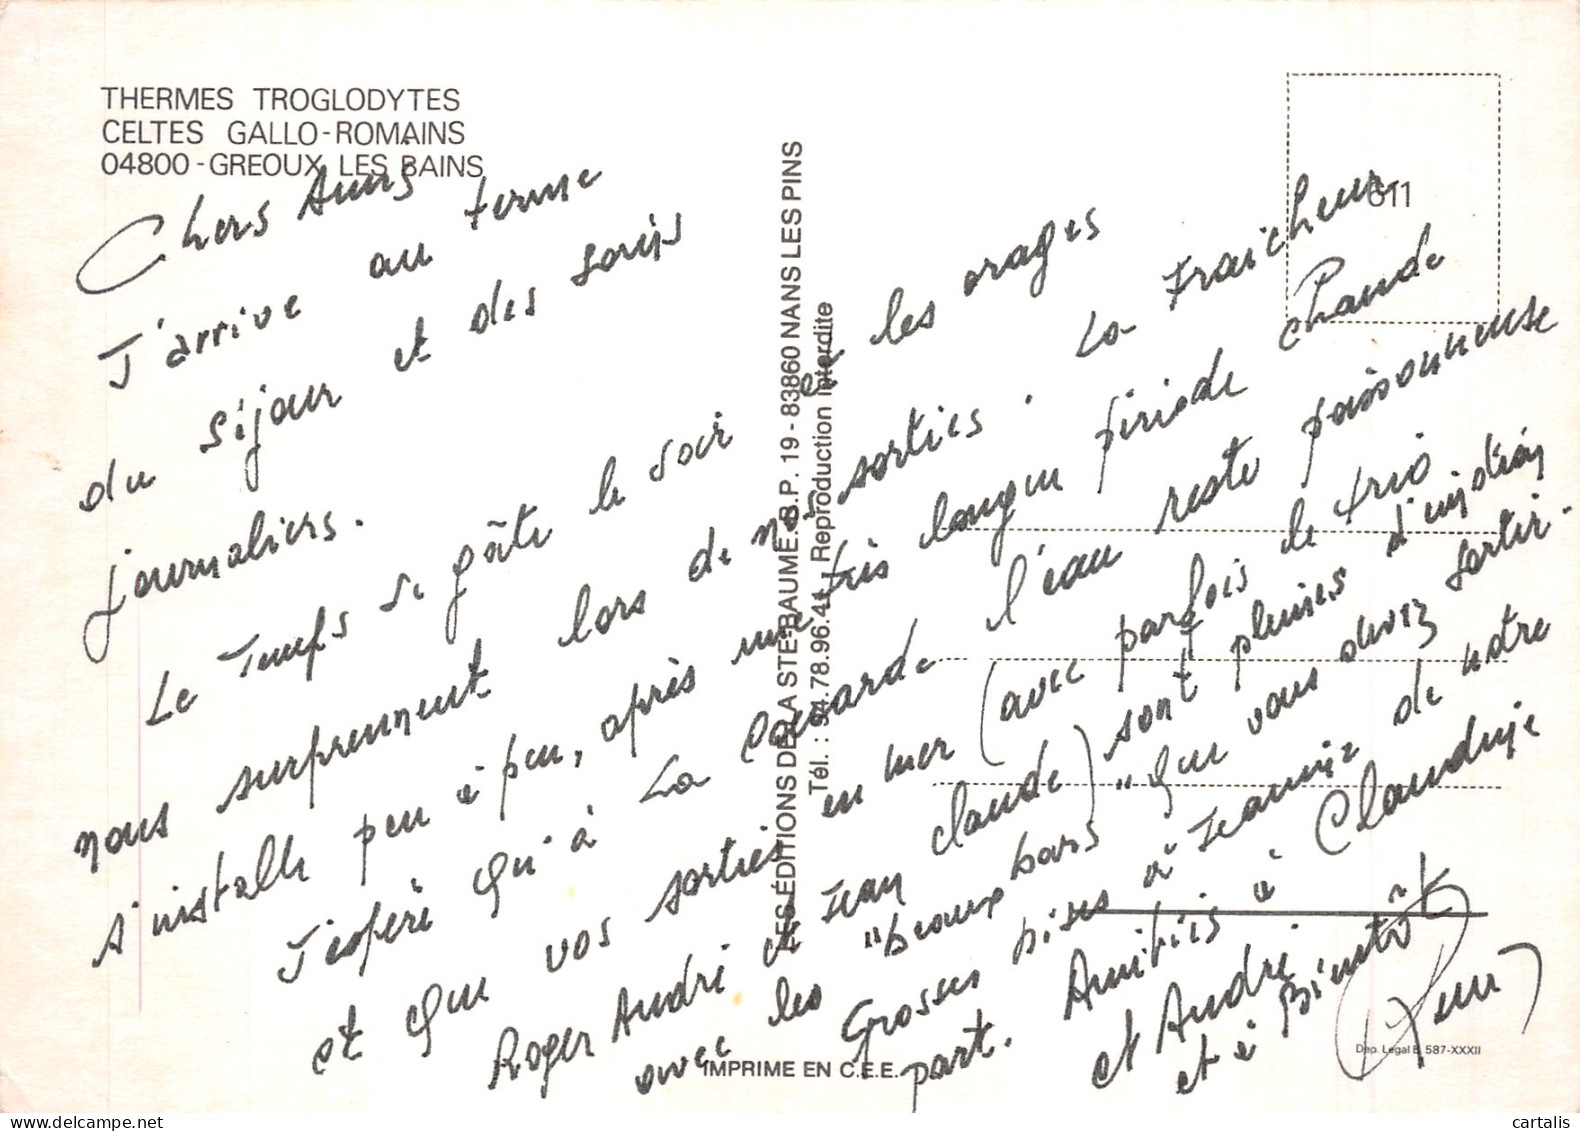 THERMES TROGLODYTES
CELTES GALLO-ROMAINS
04800 - GREOUX LES BAINS
Chers Amis
J'arrive au terme
du séjour et des soins
journaliers.
Le Temps se gâte le soir et les orages
nous surprennent lors de nos sorties. La Fraîcheur
s'installe peu à peu, après une très longue période chaude
J'espère qu'à La Couarde l'eau reste poissonneuse
et que vos sorties en mer (avec parfois le trio
Roger André et Jean Claude) sont pleines d'
avec les "beaux bars" que vous devez sortir.
Grosses bises à Jeannie de notre
part. Amitiés à Claudine
et André
et à Bientôt
LES ÉDITIONS DE LA STE-BAUME. B.P. 19 - 83860 NANS LES PINS
Tél. : 94.78.96.41. Reproduction interdite
611
IMPRIME EN C.E.E.
Dep. Légal B. 587-XXXII
cartalis